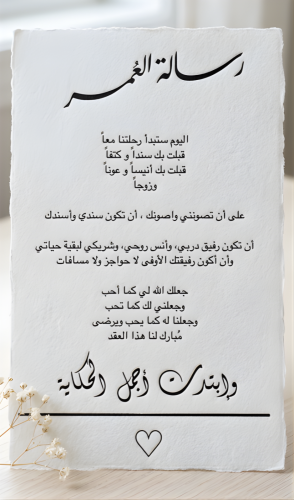 رسالة العُمر
اليوم ستبدأ رحلتنا معاً
قبلت بك سنداً و كتفاً
قبلت بك أنيساً و عوناً
وزوجاً
على أن تصونني واصونك ، أن تكون سندي وأسندك
أن تكون رفيق دربي، وأنس روحي، وشريكي لبقية حياتي
وأن أكون رفيقتك الأوفى لا حواجز ولا مسافات
جعلك الله لي كما أحب
وجعلني لك كما تحب
وجعلنا له كما يحب ويرضى
مُبارك لنا هذا العقد
وابتدت أجمل الحكاية